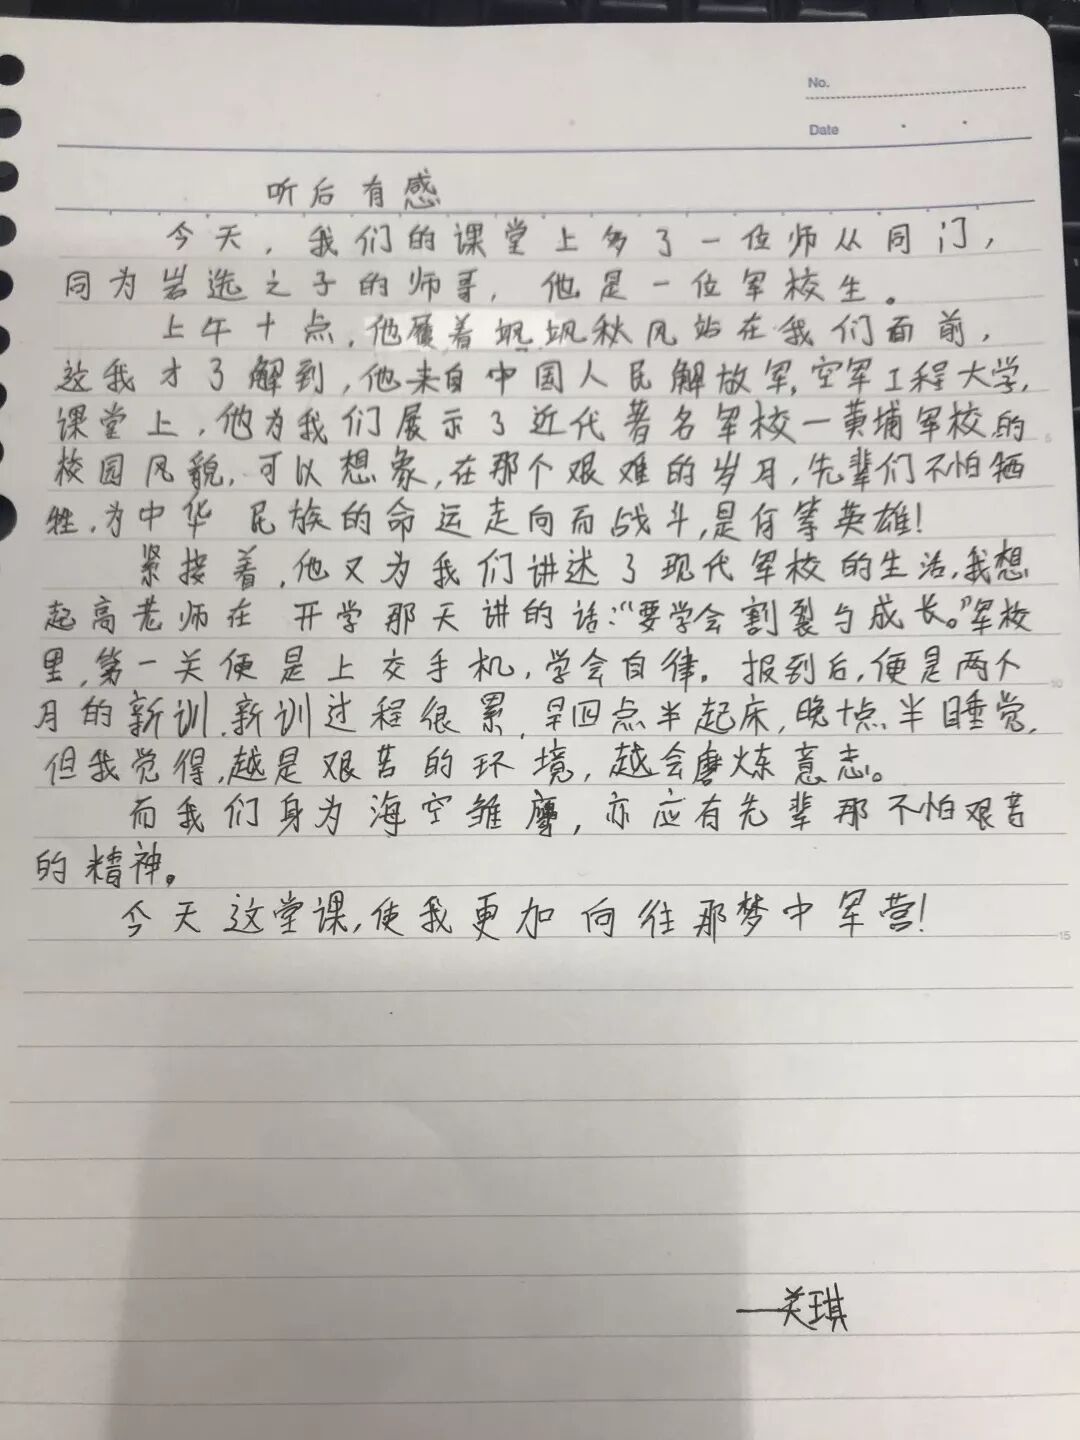 No.
Date
听后有感
今天，我们的课堂上多了一位师从同门，
同为岩选之子的师哥，他是一位军校生。
上午十点，他履着飒飒秋风站在我们面前，
这我才了解到，他来自中国人民解放军空军工程大学，
课堂上，他为我们展示了近代著名军校—黄埔军校的
校园风貌，可以想象，在那个艰难的岁月，先辈们不怕牺
牲，为中华民族的命运走向而战斗，是何等英雄！
紧接着，他又为我们讲述了现代军校的生活，我想
起高老师在开学那天讲的话：“要学会割裂与成长。”军校
里，第一关便是上交手机，学会自律。报到后，便是两个
月的新训，新训过程很累，早四点半起床，晚十点半睡觉，
但我觉得，越是艰苦的环境，越会磨炼意志。
而我们身为海空雏鹰，亦应有先辈那不怕艰苦
的精神。
今天这堂课，使我更加向往那梦中军营！
5
10
15
——关琪